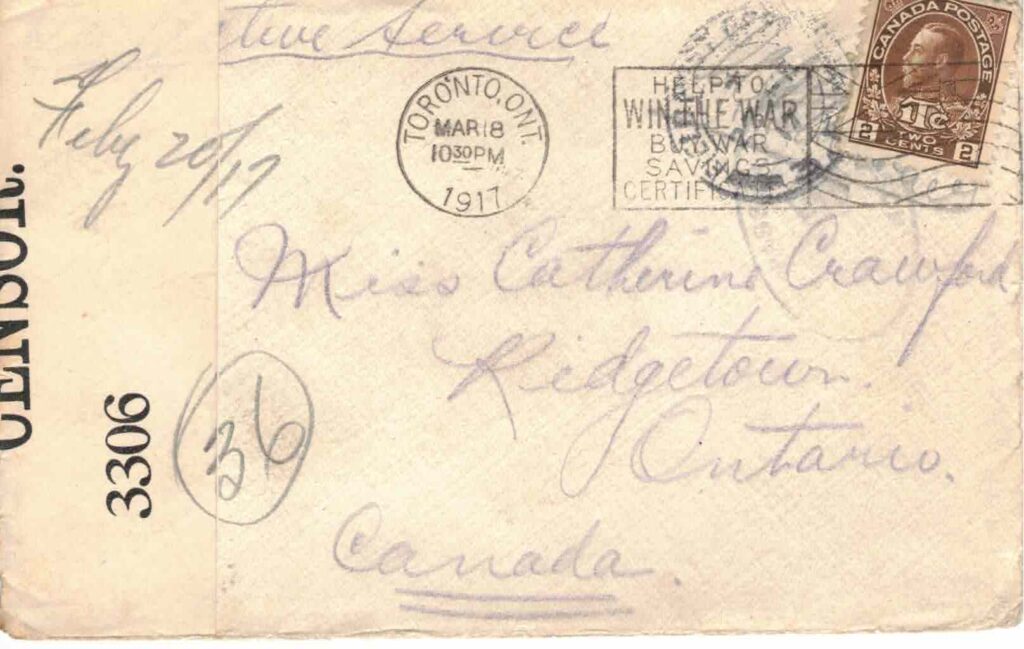 tive Service
CANADA POSTAGE
1TC
2 TWO CENTS 2
TORONTO, ONT.
MAR 18
10 30 PM
1917
HELP TO
WIN THE WAR
BUY WAR
SAVINGS
CERTIFICATES
Feby 20/17
CENSOR.
3306
36
Miss Catherine Crawford
Ridgetown.
Ontario.
Canada.